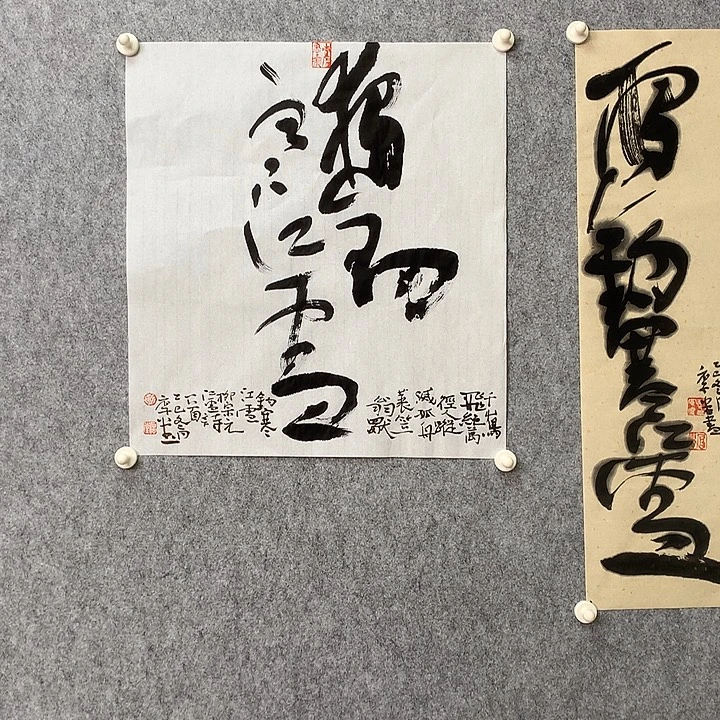 獨釣
寒江雪
千山鳥
飛絕萬
徑人蹤
滅孤舟
蓑笠
翁獨
釣寒
江雪
柳宗元
乙巳冬月
獨釣寒江雪